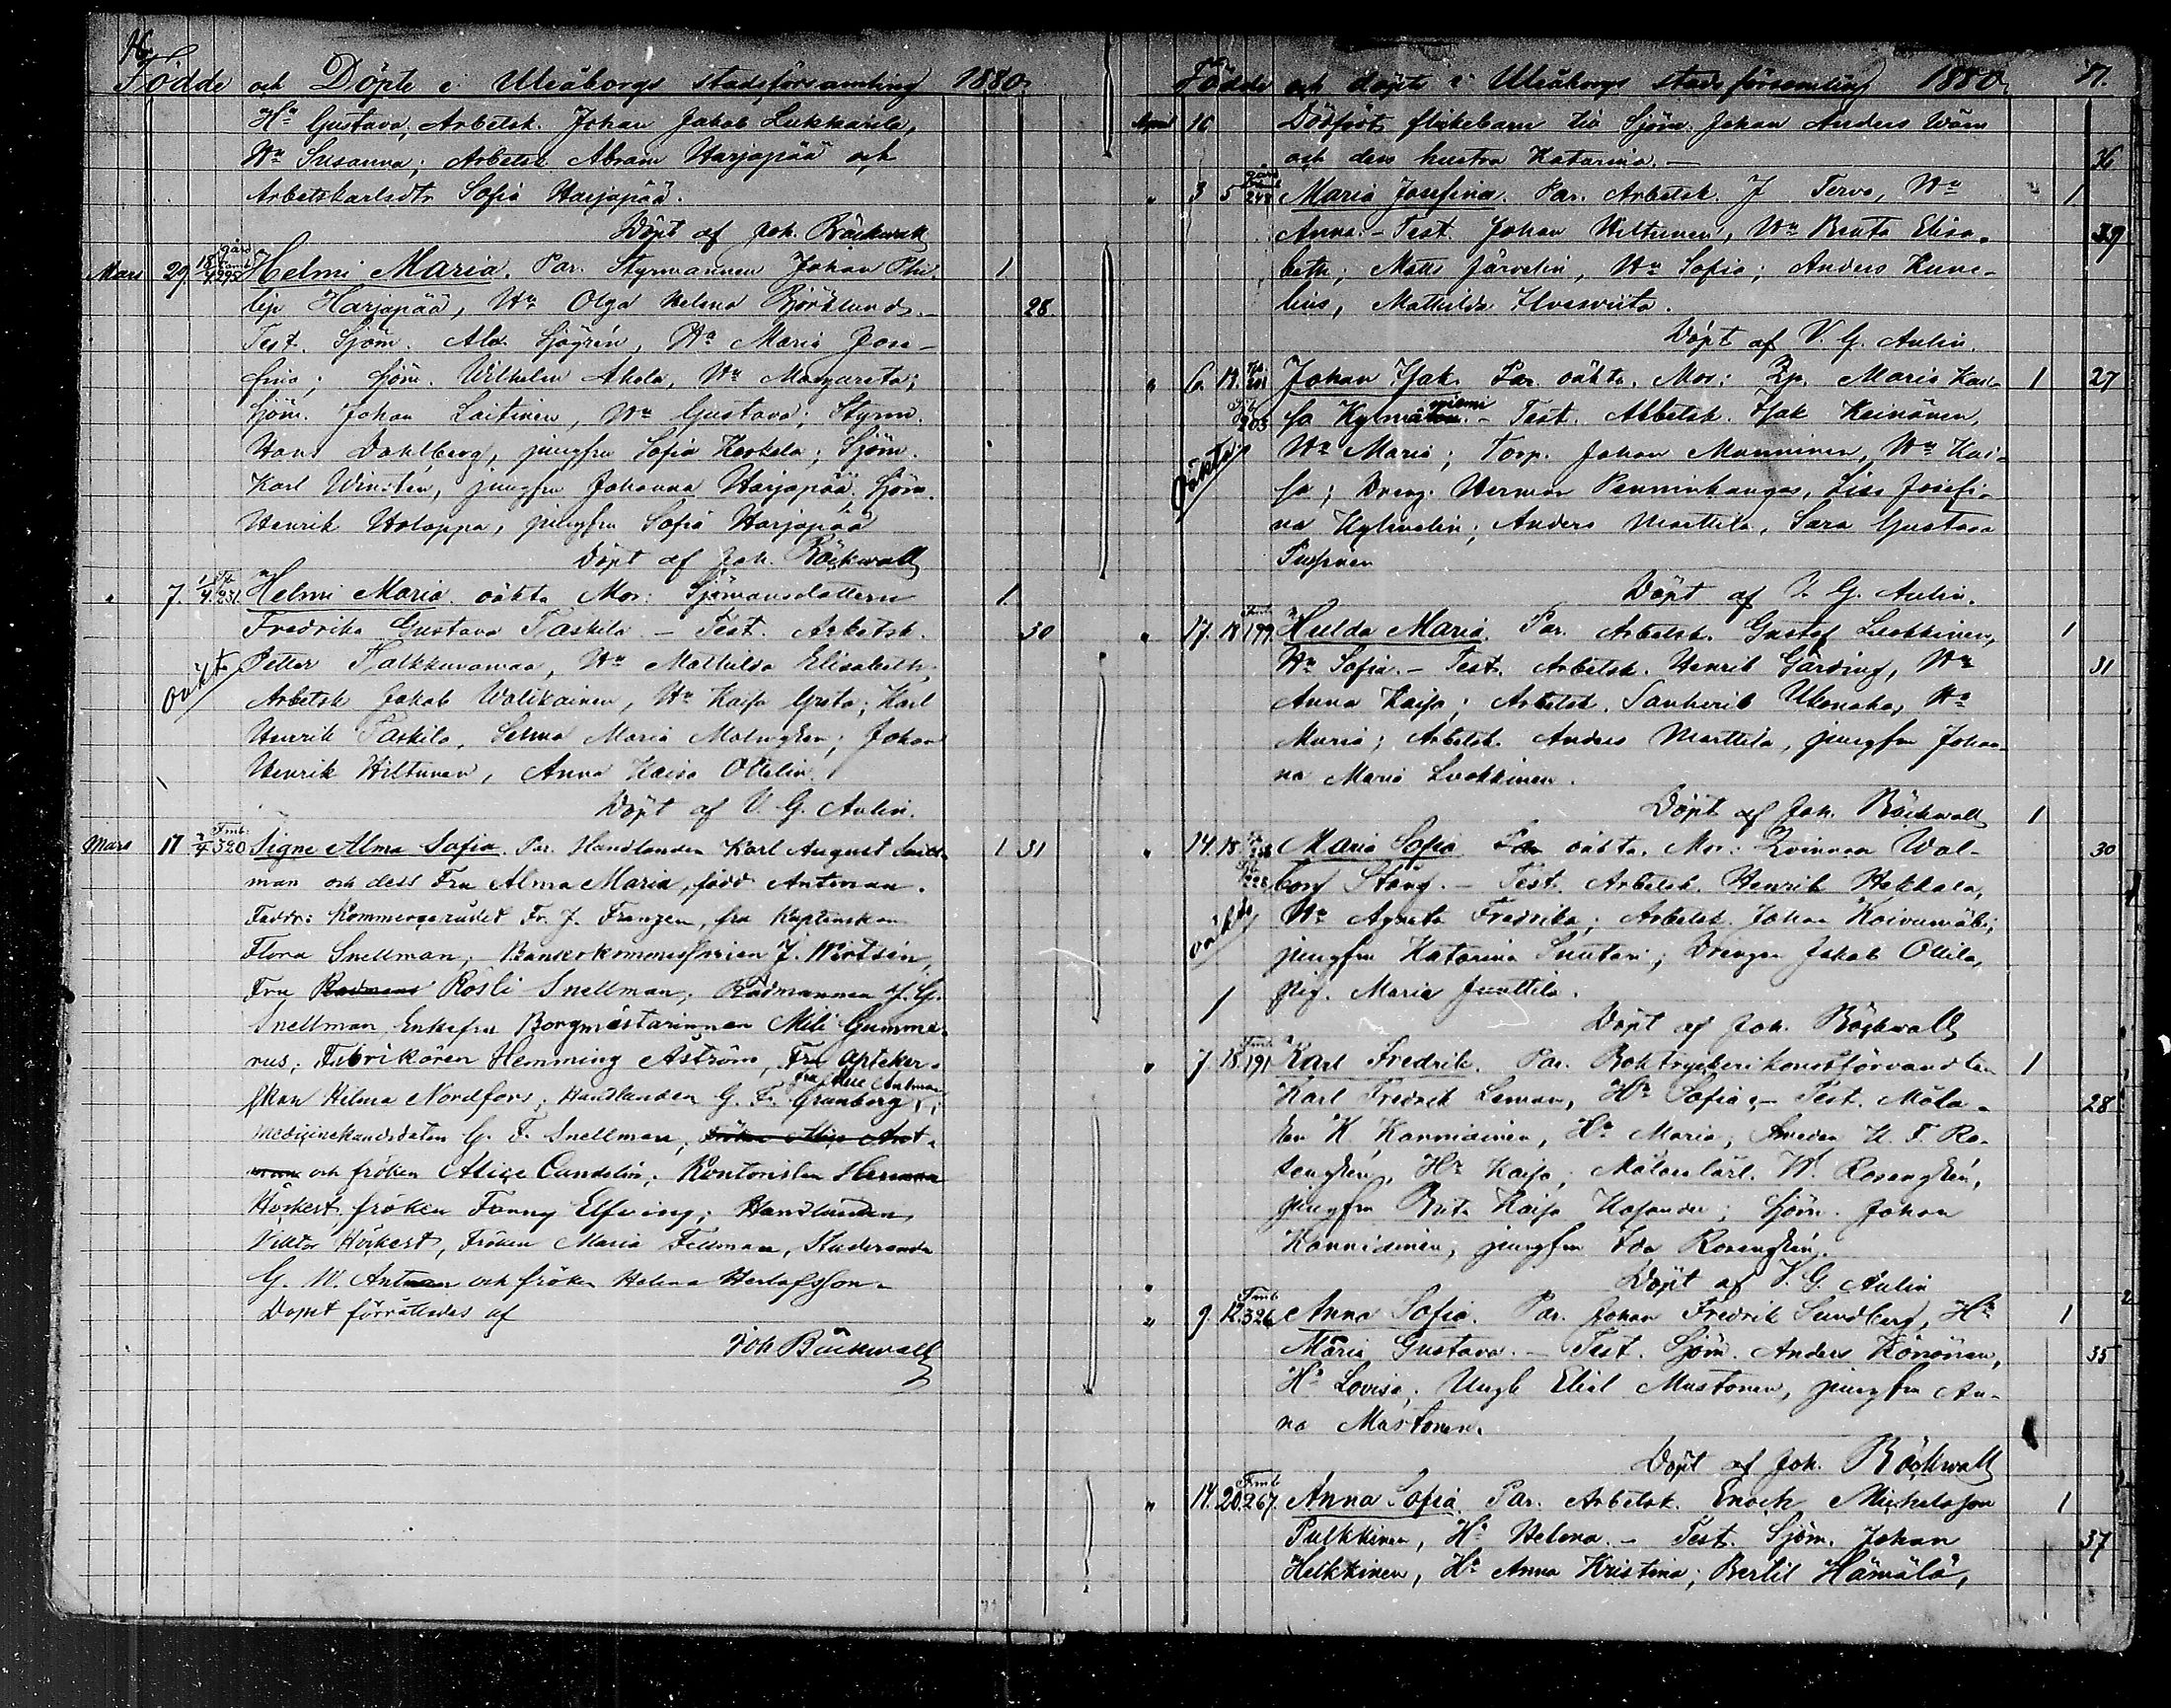 16.
Födde och Döpte i Uleåborgs stadsförsamling 1880.
Hu Gustava, Arbetsk. Johan Jakob Lukkarila,
Hu Susanna; Arbetsk Abram Harjapää och
Arbetskarlsdtr Sofia Harjapää.
Döpt af Joh. Bäckwall
gård
Mars 29. 18/4 295 Helmi Maria. Par. Styrmannen Johan Phi- 1
lip Harjapää, Hu Olga Helena Björklund. 28
Test. Sjöm. Alex. Sjögrén, Hu Maria Jose-
fina; Sjöm. Wilhelm Ahola, Hu Margareta;
Sjöm. Johan Laitinen, Hu Gustava; Styrm.
Hans Dahlberg, jungfru Sofia Keskela; Sjöm.
Karl Winsten, jungfru Johanna Harjapää. Sjöm.
Henrik Holappa, jungfru Sofia Harjapää
Döpt af Joh. Bäckwall
" 7. 1/4. 231. Helmi Maria. oäkta Mor: Sjömansdottern 1
Fredrika Gustava Taskila. - Test. Arbetsk. 30
oäkta Petter Halkkunamaa, Hu Mathilda Elisabeth,
Arbetsk Jakob Walikainen, Hu Kaisa Greta; Karl
Henrik Taskila, Selma Maria Malmgren; Johan
Henrik Hiltunen, Anna Kaisa Ollelin.
Döpt af V. G. Aulin.
Fmb.
Mars 17 2/4 320 Signe Alma Sofia. Par. Handlanden Karl August Snell- 1 31
man och dess Fru Alma Maria, född Antman.
Faddr: Kommerserådet Fr. J. Franzen, fru Kaptenskan
Flora Snellman; J. Wirtsén,
Fru Rådmans Rosli Snellman; Rådmannen G.
Snellman Enkefru Borgmästarinnan Mili Gumme-
rus; Fabrikören Hemming Åström, Fru Apteker-
fru Antman
skan Hilma Nordfors; Handlanden G. F. Granberg;
Medicinekandidaten G. F. Snellman, Fröken Ant-
man och fröken Alice Candelin; Kontoristen Herman
Höckert, fröken Fanny Elfving; Handlanden
Viktor Höckert, Fröken Maria Fellman, Studerande
G. W. Antman och fröken Helena
Dopet förrättades af
Joh Bäckwall
Födde och döpte i Uleåborgs stadsförsamling 1880. 17.
April 10 Dödfödt flickebarn till Sjöm. Johan Anders
och dess hustru Katarina. - 36
" 3 5 248 Maria Josefina. Par. Arbetsk. J Tervo, Hu 1
Anna. - Test. Johan Hiltunen, Hu Breta Elisa- 39
beth; Matts Järvelin, Hu Sofia; Anders Kune-
lius, Mathilda Ilvesviita.
Döpt af V. G. Aulin.
" 6. 13. 201 Johan Isak. Par. oäkta. Mor: Maria Kai- 1 27
203 sa Kylmä niemi. - Test. Arbetsk. Isak Keinänen,
oäkta Hu Maria; Torp. Johan Manninen, Hu Kai-
sa; Dreng. Herman Penninkangas, Lisa Josefi-
na Kylmelin; Anders Marttila, Sara Gustava
Döpt af V. G. Aulin.
Fmb
" 17. 18 199. Hulda Maria. Par. Arbetsk. Gustaf Luokkinen, 1
Hu Sofia. - Test. Arbetsk. Henrik Gärding, Hu 31
Anna Kaisa; Arbetsk. Sanherib Ukonaho, Hu
Maria; Arbetsk. Anders Marttila, jungfru Johan-
na Maria Luokkinen.
Döpt af Joh. Bäckwall 1
" 14. 18 Maria Sofia Par oäkta. Mor: Qvinnan Wal- 30
borg Stång. - Test. Arbetsk. Henrik Hakkala,
oäkta Hu Agneta Fredrika; Arbetsk. Johan Koivumäki;
jungfru Katarina Suutari; Drengen Jakob Ollila,
pig. Maria Junttila.
Döpt af Joh. Bäckwall
Fmb
" 7. 18. 191 Karl Fredrik. Par. Boktryckerikonstförvandten 1
Karl Fredrik Leman, Hu Sofia. - Test. Måla- 28
ren K. Kanniainen, Hu Maria; Smeden K. F. Ro-
sengrén, Hu Kaisa; Målarelärl. W. Rosengrén,
jungfru Brita Kaisa; Sjöm. Johan
Kanniainen, jungfru Ida Rosengrén.
Döpt af V. G. Aulin
Fmb
" 9. 12. 326 Anna Sofia. Par. Johan Fredrik Sundberg, Hu 1
Maria Gustava. - Test. Sjöm. Anders Könönen, 35
Hu Lovisa; Ungk Eliel Mustonen, jungfru An-
na Mustonen.
Döpt af Joh. Bäckwall
Fmb
" 14. 20. 267. Anna Sofia. Par. Arbetsk. Enoch Michelsson 1
Pulkkinen, Hu Helena. - Test. Sjöm. Johan 37
Heikkinen, Hu Anna Kristina; Bertil Hämälä,